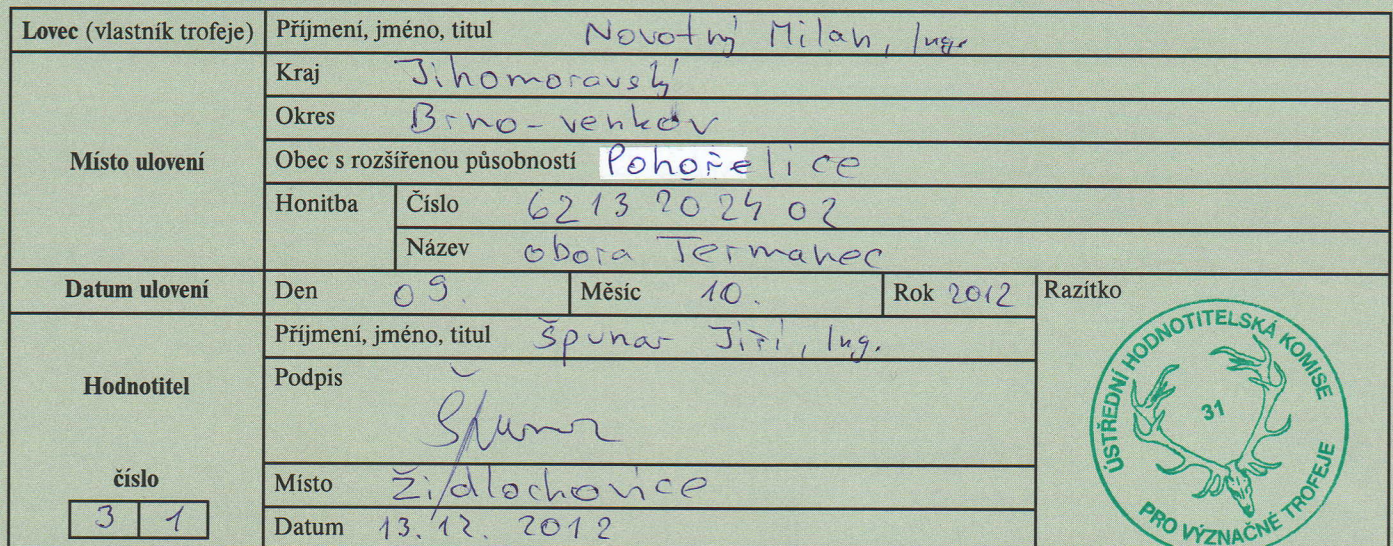 Lovec (vlastník trofeje) Příjmení, jméno, titul Novotný Milan, Ing.
Kraj Jihomoravský
Okres Brno-venkov
Místo ulovení Obec s rozšířenou působností Pohořelice
Honitba Číslo 6213202402
Název obora Termanec
Datum ulovení Den 09. Měsíc 10. Rok 2012 Razítko
Příjmení, jméno, titul Špunar Jiří, Ing.
Hodnotitel Podpis Špunar
číslo Místo Židlochovice
31 Datum 13.12. 2012
ÚSTŘEDNÍ HODNOTITELSKÁ KOMISE
31
PRO VÝZNAČNÉ TROFEJE